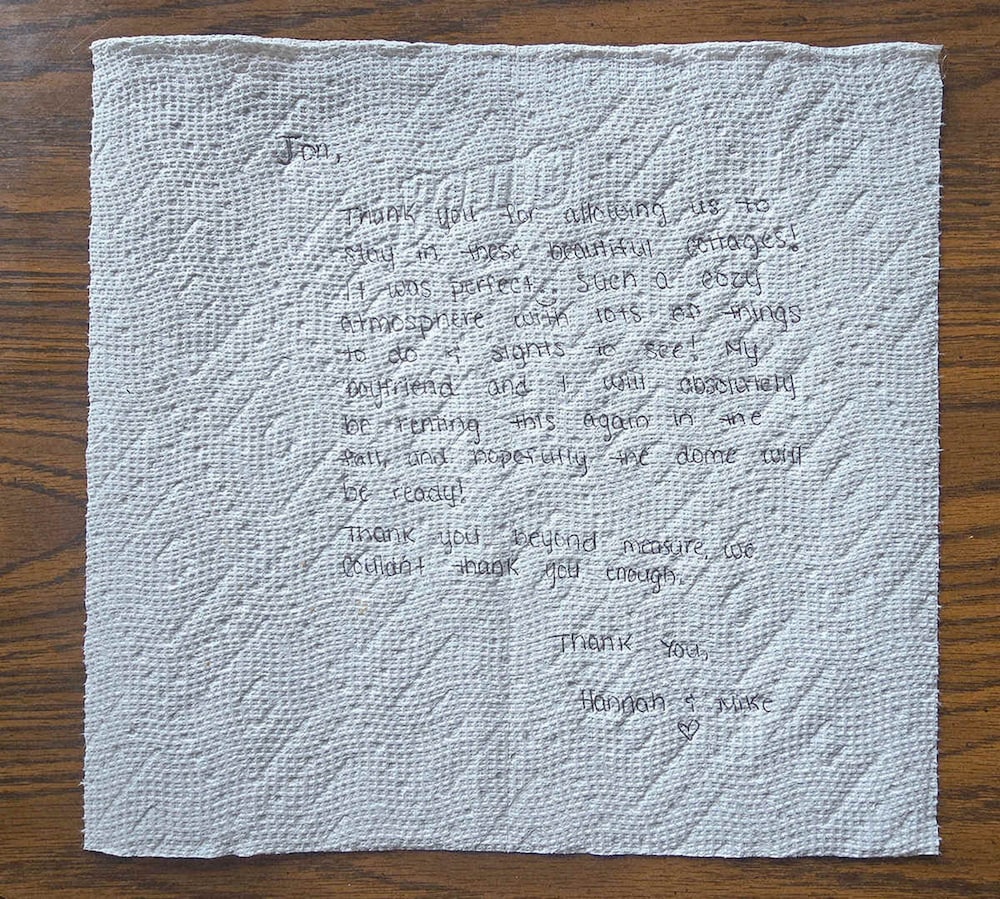 Jon,
Thank you for allowing us to
stay in these beautiful cottages!
It was perfect. Such a cozy
atmosphere with lots of things
to do & sights to see! My
boyfriend and I will absolutely
be renting this again in the
fall, and hopefully the dome will
be ready!
Thank you beyond measure, we
couldnt thank you enough.
Thank You,
Hannah & Mike